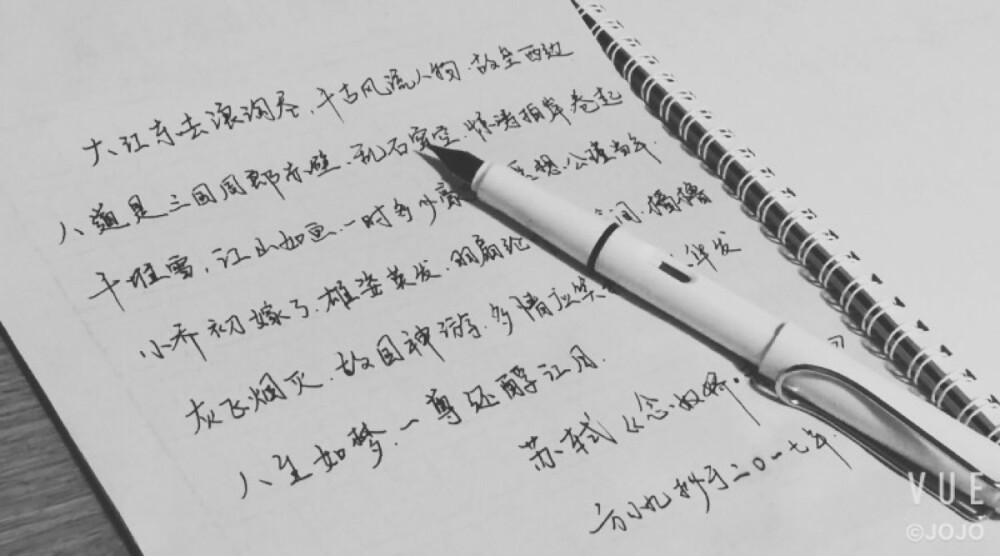 大江东去浪淘尽.千古风流人物.故垒西边
人道是三国周郎赤壁.乱石穿空.惊涛拍岸卷起
千堆雪.江山如画.一时多少豪 想.公瑾当年.
小乔初嫁了.雄姿英发.羽扇纶 间.樯橹
灰飞烟灭.故国神游.多情应笑 华发
人生如梦.一尊还酹江月.
苏轼《念·奴娇·
方小九抄于二〇一七年.
VUE
©JOJO